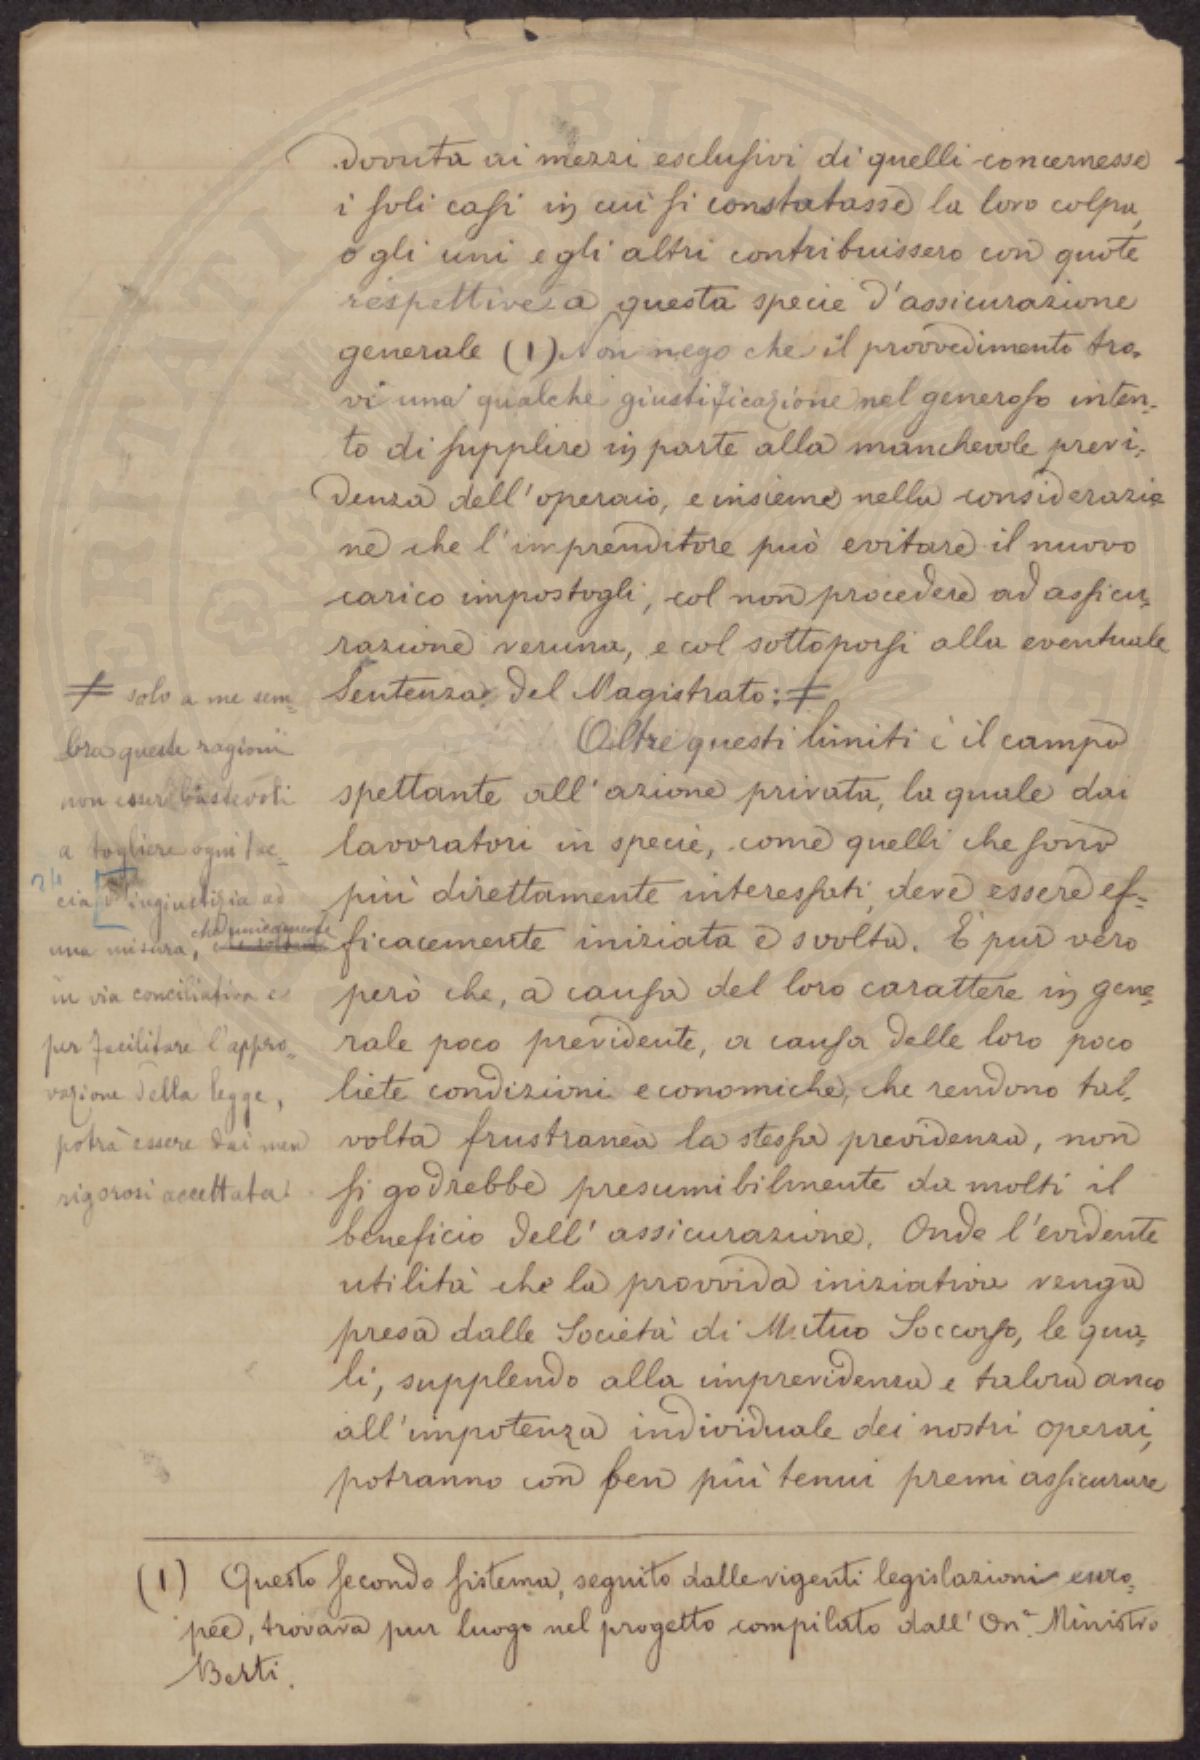 dovuta ai mezzi esclusivi di quelli concernesse
i soli casi in cui si constatasse la loro colpa,
o gli uni e gli altri contribuissero con quote
respettive a questa specie d'assicurazione
generale (1) Non nego che il provvedimento tro-
vi una qualche giustificazione nel generoso inten-
to di supplire in parte alla manchevole previ-
denza dell'operaio, e insieme nella considerazio
ne che l'imprenditore può evitare il nuovo
carico impostogli, col non procedere ad assicu-
razione veruna, e col sottoporsi alla eventuale
Sentenza del Magistrato: ≠
≠ solo a me sem-
bra queste ragioni
non esser bastevoli
a togliere ogni trac-
cia d'ingiustizia ad
una misura, che unicamente
in via conciliativa e
per facilitare l'appro-
vazione della legge,
potrà essere dai men
rigorosi accettata.
Oltre questi limiti è il campo
spettante all'azione privata, la quale dai
lavoratori in specie, come quelli che sono
più direttamente interessati, deve essere ef-
ficacemente iniziata e svolta. È pur vero
però che, a causa del loro carattere in gene-
rale poco previdente, a causa delle loro poco
liete condizioni economiche, che rendono tal-
volta frustranea la stessa previdenza, non
si godrebbe presumibilmente da molti il
beneficio dell'assicurazione. Onde l'evidente
utilità che la provvida iniziativa venga
presa dalle Società di Mutuo Soccorso, le qua-
li, supplendo alla imprevidenza e talora anco
all'impotenza individuale dei nostri operai,
potranno con ben più tenui premi assicurare
(1) Questo secondo sistema, seguito dalle vigenti legislazioni euro-
pee, trovava pur luogo nel progetto compilato dall'On. Ministro
Berti.